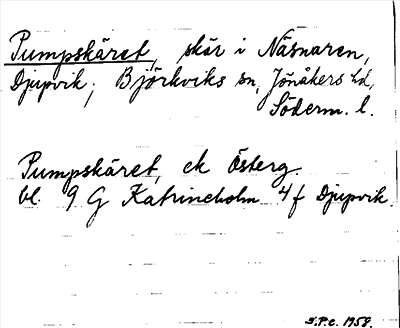 Pumpskäret, skär i Näsnaren,
Djupvik, Björkviks sn, Jönåkers hd,
Söderm. l.
Pumpskäret, ek Österg.
bl. 9 G Katrineholm 4f Djupvik.
S.P.C. 1958.